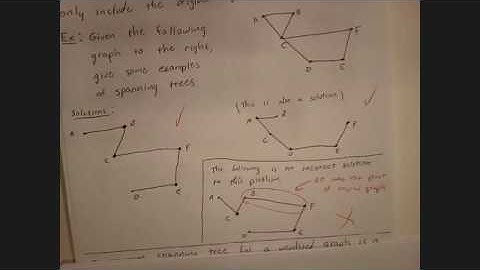 only include the original
Ex: Given the following
graph to the right,
give some examples
of spanning trees
A
B
C
F
D
E
Solutions:
A
B
C
F
D
E
(This is also a solution)
A
B
C
D
E
F
The following is an incorrect solution
to this problem
A
B
C
F
D
E
of original graph
spanning tree for a weighted graph is a